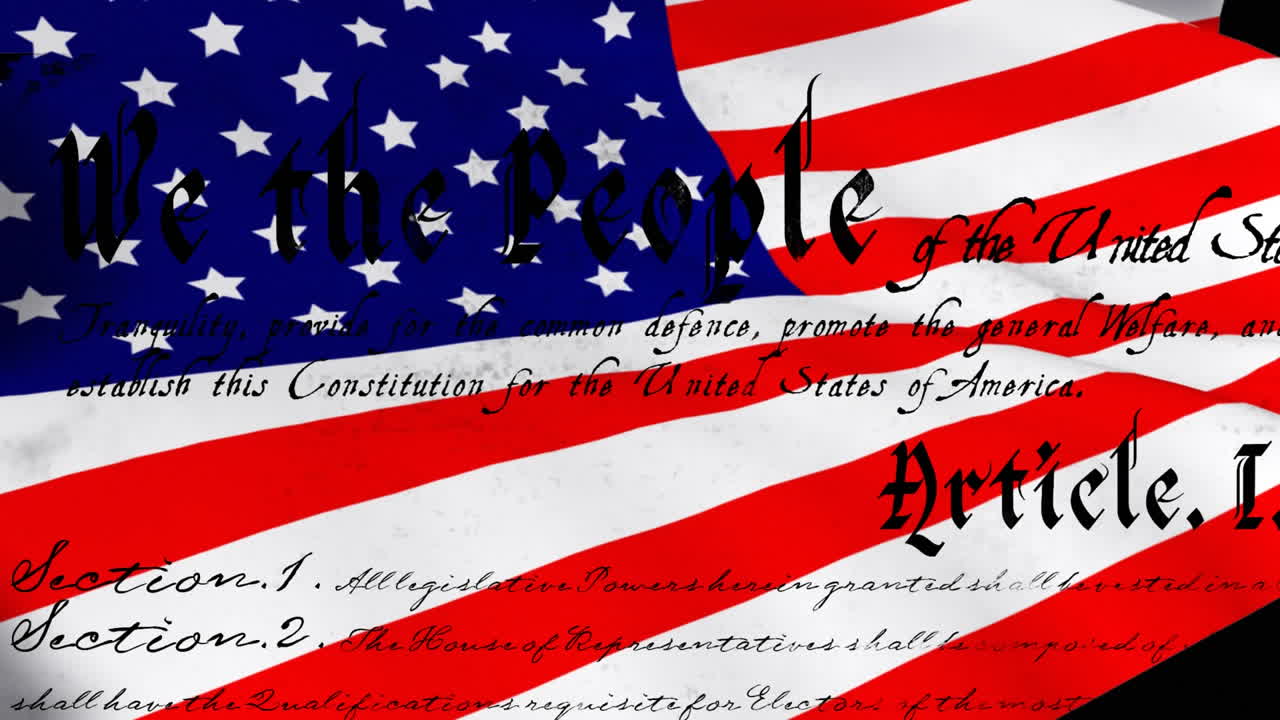 We the People of the United St
Tranquility, provide for the common defence, promote the general Welfare, an
establish this Constitution for the United States of America.
Article. I.
Section. 1. All legislative Powers herein granted shall be vested in a
Section. 2. The House of Representatives shall be composed of
shall have the Qualifications requisite for Electors of the most